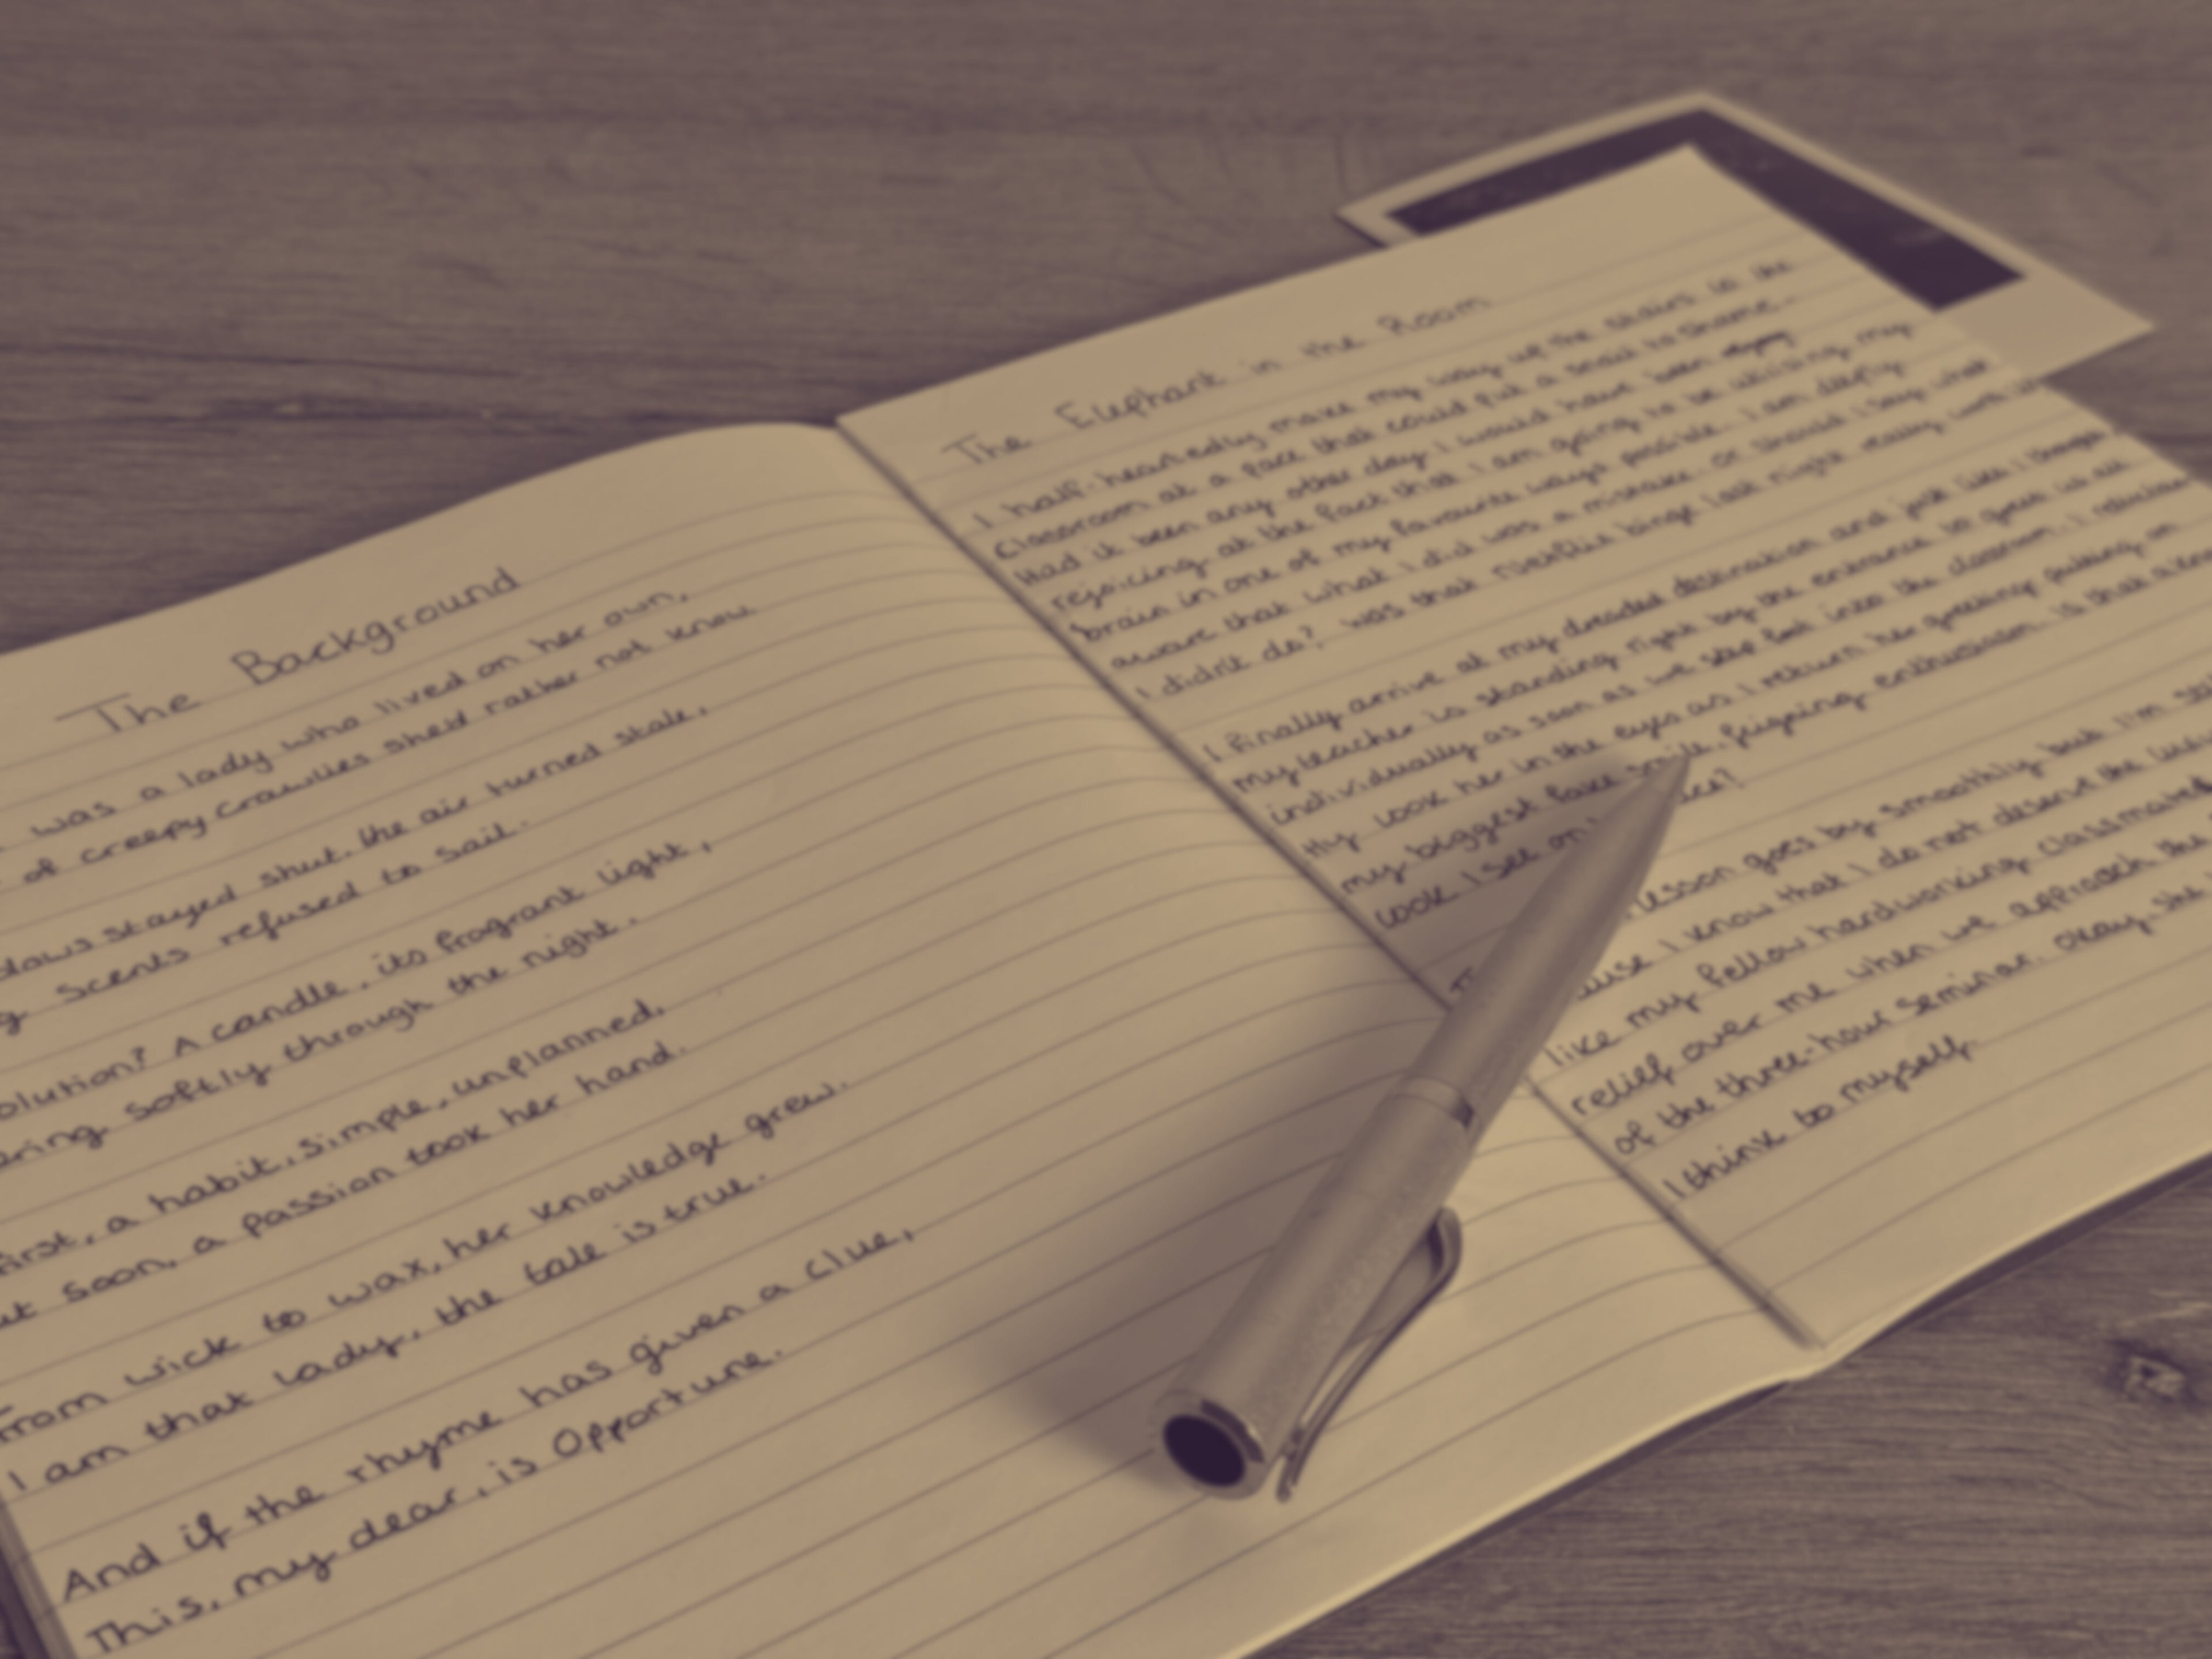 The Background
was a lady who lived on her own,
of creepy crawlies she'd rather not know
stayed shut, the air turned stale,
scents refused to sail.
A candle, its fragrant light,
softly through the night.
first, a habit, simple, unplanned.
soon, a passion took her hand.
From wick to wax, her knowledge grew.
I am that lady, the tale is true.
And if the rhyme has given a clue,
This, my dear, is Opportune.
The Elephant in the Room
I half-heartedly make my way up the stairs to the
classroom at a pace that could put a snail to shame.
Had it been any other day I would have been
rejoicing at the fact that I am going to be utilising my
brain in one of my favourite ways possible. I am deeply
aware that what I did was a mistake. Or should I say what
I didn't do? Was that Netflix binge last night really worth it?
I finally arrive at my dreaded destination and just like I thought
my teacher is standing right by the entrance to greet us all
individually as soon as we step foot into the classroom. I
look her in the eyes as I return her greeting putting on
my biggest fake smile, feigning enthusiasm. Is that a
look I see on
lesson goes by smoothly but I'm
I know that I do not deserve the
like my fellow hardworking classmates
relief over me when we approach the
of the three-hour seminar. Okay,
I think to myself.